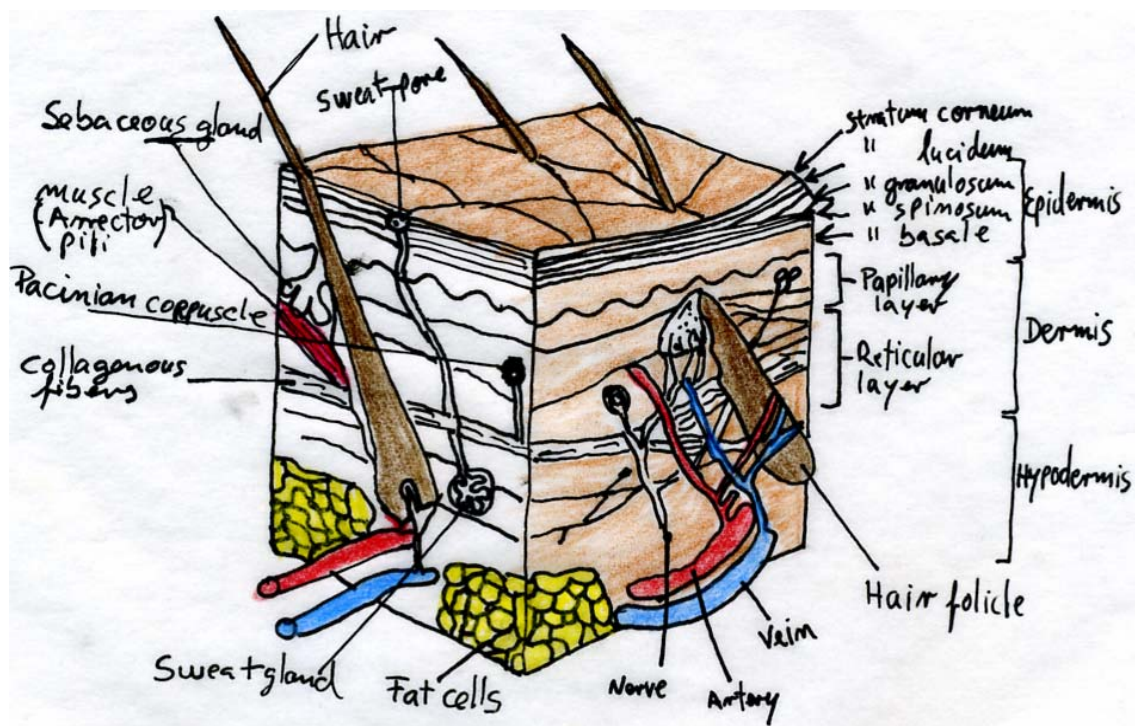 Hair
sweat pore
Sebaceous gland
muscle
(Arrector)
pili
Pacinian corpuscle
Collagenous
fibers
stratum corneum
" lucidum
" granulosum
" spinosum
" basale
Epidermis
Papillary
layer
Dermis
Reticular
layer
Hypodermis
Hair folicle
Vein
Artery
Nerve
Fat cells
Sweat gland